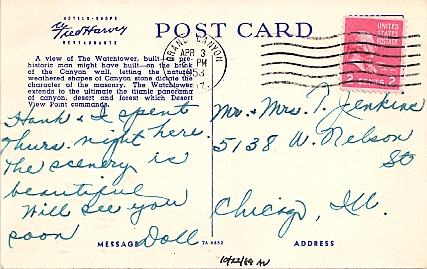 HOTELS · SHOPS
Fred Harvey
RESTAURANTS
POST CARD
A view of The Watchtower, built as pre-
historic man might have built—on the brink
of the Canyon wall, letting the natural
weathered shapes of Canyon stone dictate the
character of the masonry. The Watchtower
extends to the ultimate the titanic panorama
of canyon, desert and forest which Desert
View Point commands.
GRAND CANYON
APR 3
PM
1953
UNITED
STATES
POSTAGE
2 2
Hank & I spent
Thurs. night here.
The scenery is
beautiful
Will see you
soon Doll
Mr. & Mrs. T. Jenkins
5138 W. Nelson
St
Chicago, Ill.
MESSAGE
7A-H652
ADDRESS